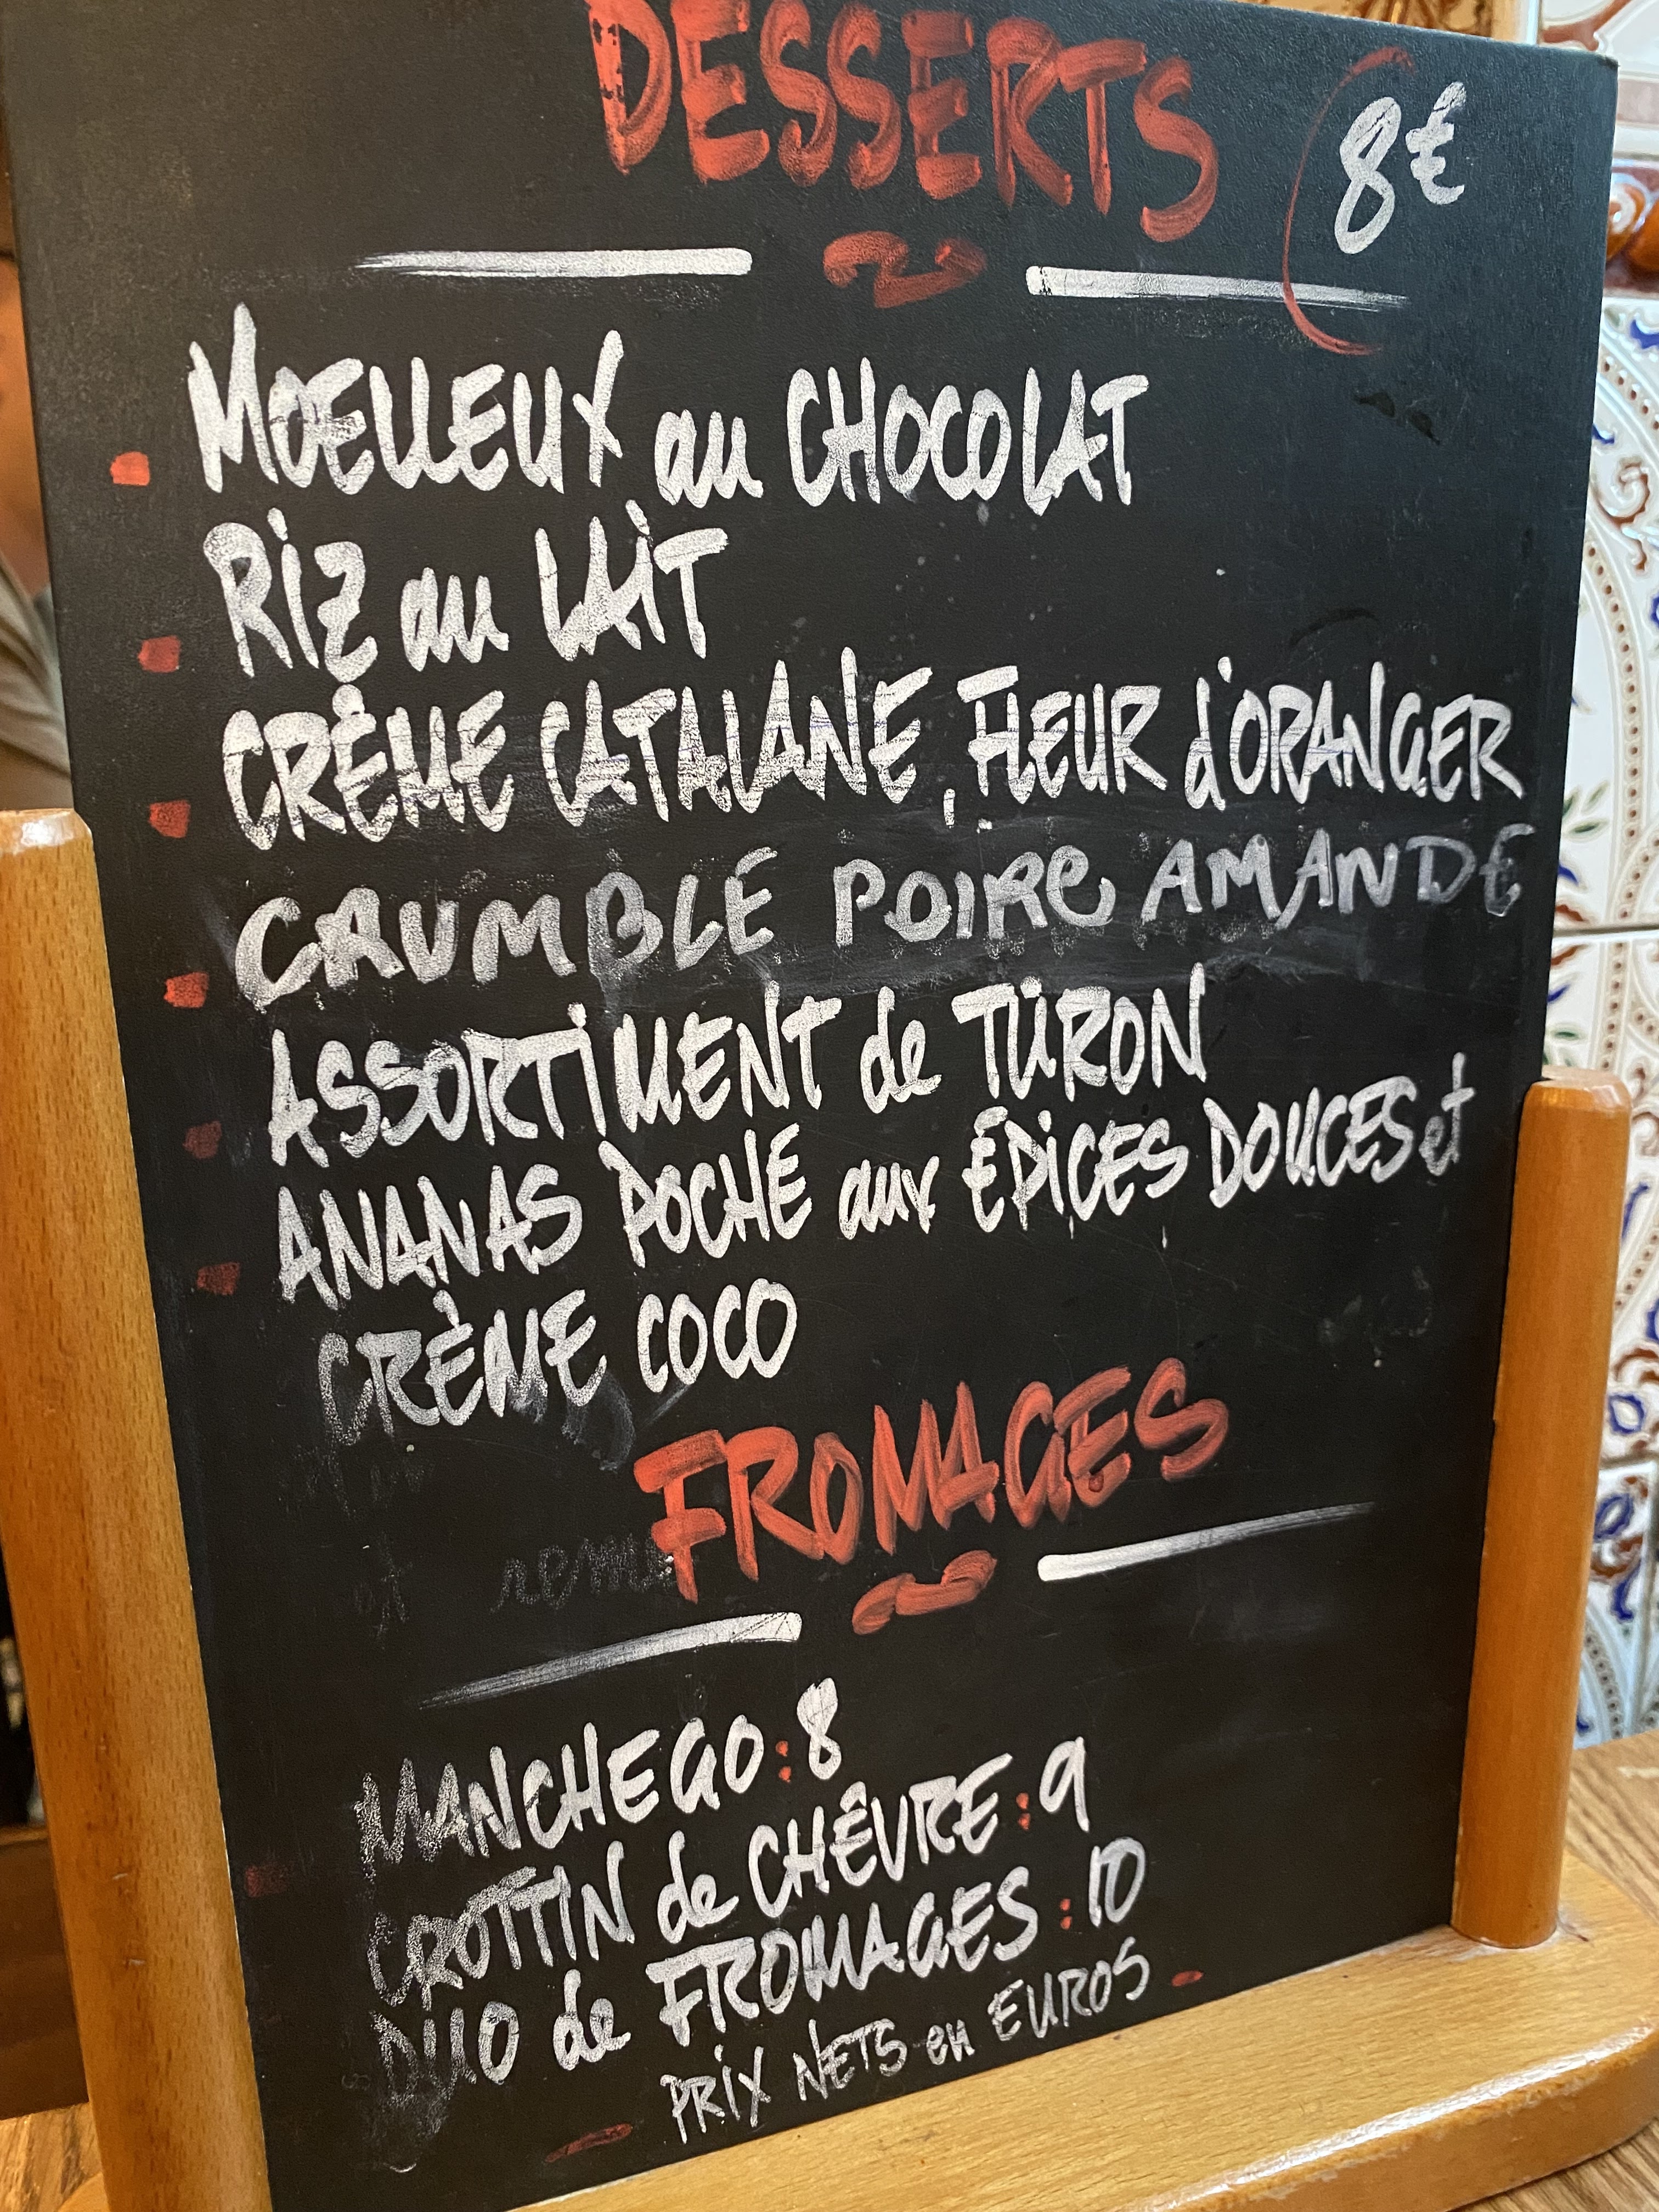 DESSERTS 8€
MOELLEUX au CHOCOLAT
RIZ au LAIT
CRÈME CATALANE, FLEUR d'ORANGER
CRUMBLE POIRE AMANDE
ASSORTIMENT de TURON
ANANAS POCHÉ aux ÉPICES DOUCES et
CRÈME COCO
FROMAGES
MANCHEGO : 8
CROTTIN de CHÈVRE : 9
DUO de FROMAGES : 10
PRIX NETS en EUROS